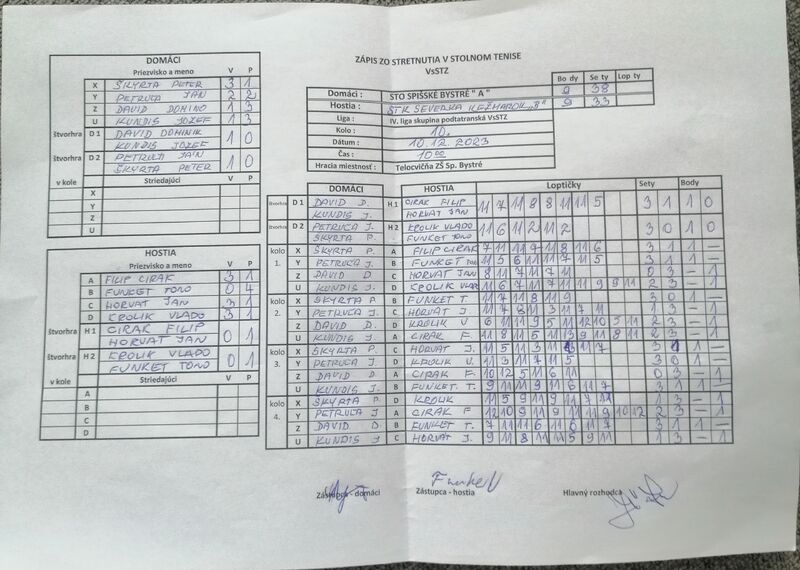 DOMÁCI
Priezvisko a meno V P
X ŠKYRTA PETER 3 1
Y PETRUĽA JÁN 2 2
Z DAVID DOMINO 1 3
U KUNDIS JOZEF 1 3
štvorhra D 1 DAVID DOMINIK 1 0
KUNDIS JOZEF
štvorhra D 2 PETRUĽA JÁN 1 0
ŠKYRTA PETER
v kole Striedajúci V P
X
Y
Z
U
HOSTIA
Priezvisko a meno V P
A FILIP CIRAK 3 1
B FUNKET TONO 0 4
C HORVAT JAN 3 1
D KROLIK VLADO 3 1
štvorhra H 1 CIRAK FILIP 0 1
HORVAT JAN
štvorhra H 2 KROLIK VLADO 0 1
FUNKET TONO
v kole Striedajúci V P
A
B
C
D
ZÁPIS ZO STRETNUTIA V STOLNOM TENISE
VsSTZ
Bo dy Se ty Lop ty
Domáci : STO SPIŠSKÉ BYSTRÉ " A " 9 38
Hostia : ŠTK SEVERKA KEŽMAROK „B" 9 33
Liga : IV. liga skupina podtatranská VsSTZ
Kolo : 10.
Dátum : 10.12.2023
Čas : 10 00
Hracia miestnosť : Telocvičňa ZŠ Sp. Bystré
DOMÁCI HOSTIA Loptičky Sety Body
štvorhra D 1 DAVID D. H 1 CIRAK FILIP 11 7 11 8 8 11 11 5 3 1 1 0
KUNDIS J. HORVAT JAN
štvorhra D 2 PETRUĽA J. H 2 KROLIK VLADO 11 6 11 2 11 2 3 0 1 0
ŠKYRTA P. FUNKET TONO
kolo 1.
X ŠKYRTA P. A FILIP CIRAK 7 11 11 9 11 8 11 6 3 1 1 —
Y PETRUĽA J. B FUNKET TONO 11 5 6 11 11 7 11 5 3 1 1 —
Z DAVID D C HORVAT JAN 8 11 7 11 7 11 0 3 — 1
U KUNDIS J. D KROLIK VLAD 11 6 7 11 7 11 11 9 9 11 2 3 — 1
kolo 2.
X ŠKYRTA P. B FUNKET T. 11 7 11 8 11 9 3 0 1 —
Y PETRUĽA J. C HORVAT J. 11 7 8 11 3 11 7 11 1 3 — 1
Z DAVID D. D KROLIK V 6 11 11 9 5 11 12 10 5 11 2 3 — 1
U KUNDIS J. A CIRAK F. 11 8 11 5 11 13 9 11 8 11 2 3 — 1
kolo 3.
X ŠKYRTA P. C HORVAT J. 11 5 11 3 11 7 3 1 —
Y PETRUĽA J D KROLIK V. 11 3 11 7 11 5 3 0 1 —
Z DAVID D A CIRAK F. 10 12 5 11 6 11 0 3 — 1
U KUNDIS J. B FUNKET. T. 9 11 11 9 11 6 11 7 3 1 1 —
kolo 4.
X ŠKYRTA P. D KROLIK 11 5 9 11 9 11 7 11 1 3 — 1
Y PETRUĽA J A CIRAK F 12 10 9 11 9 11 11 9 10 12 2 3 — 1
Z DAVID D. B FUNKET T. 7 11 11 6 11 6 11 7 3 1 1 —
U KUNDIS J C HORVAT J. 9 11 8 11 11 5 9 11 1 3 — 1
Zástupca - domáci Zástupca - hostia Hlavný rozhodca